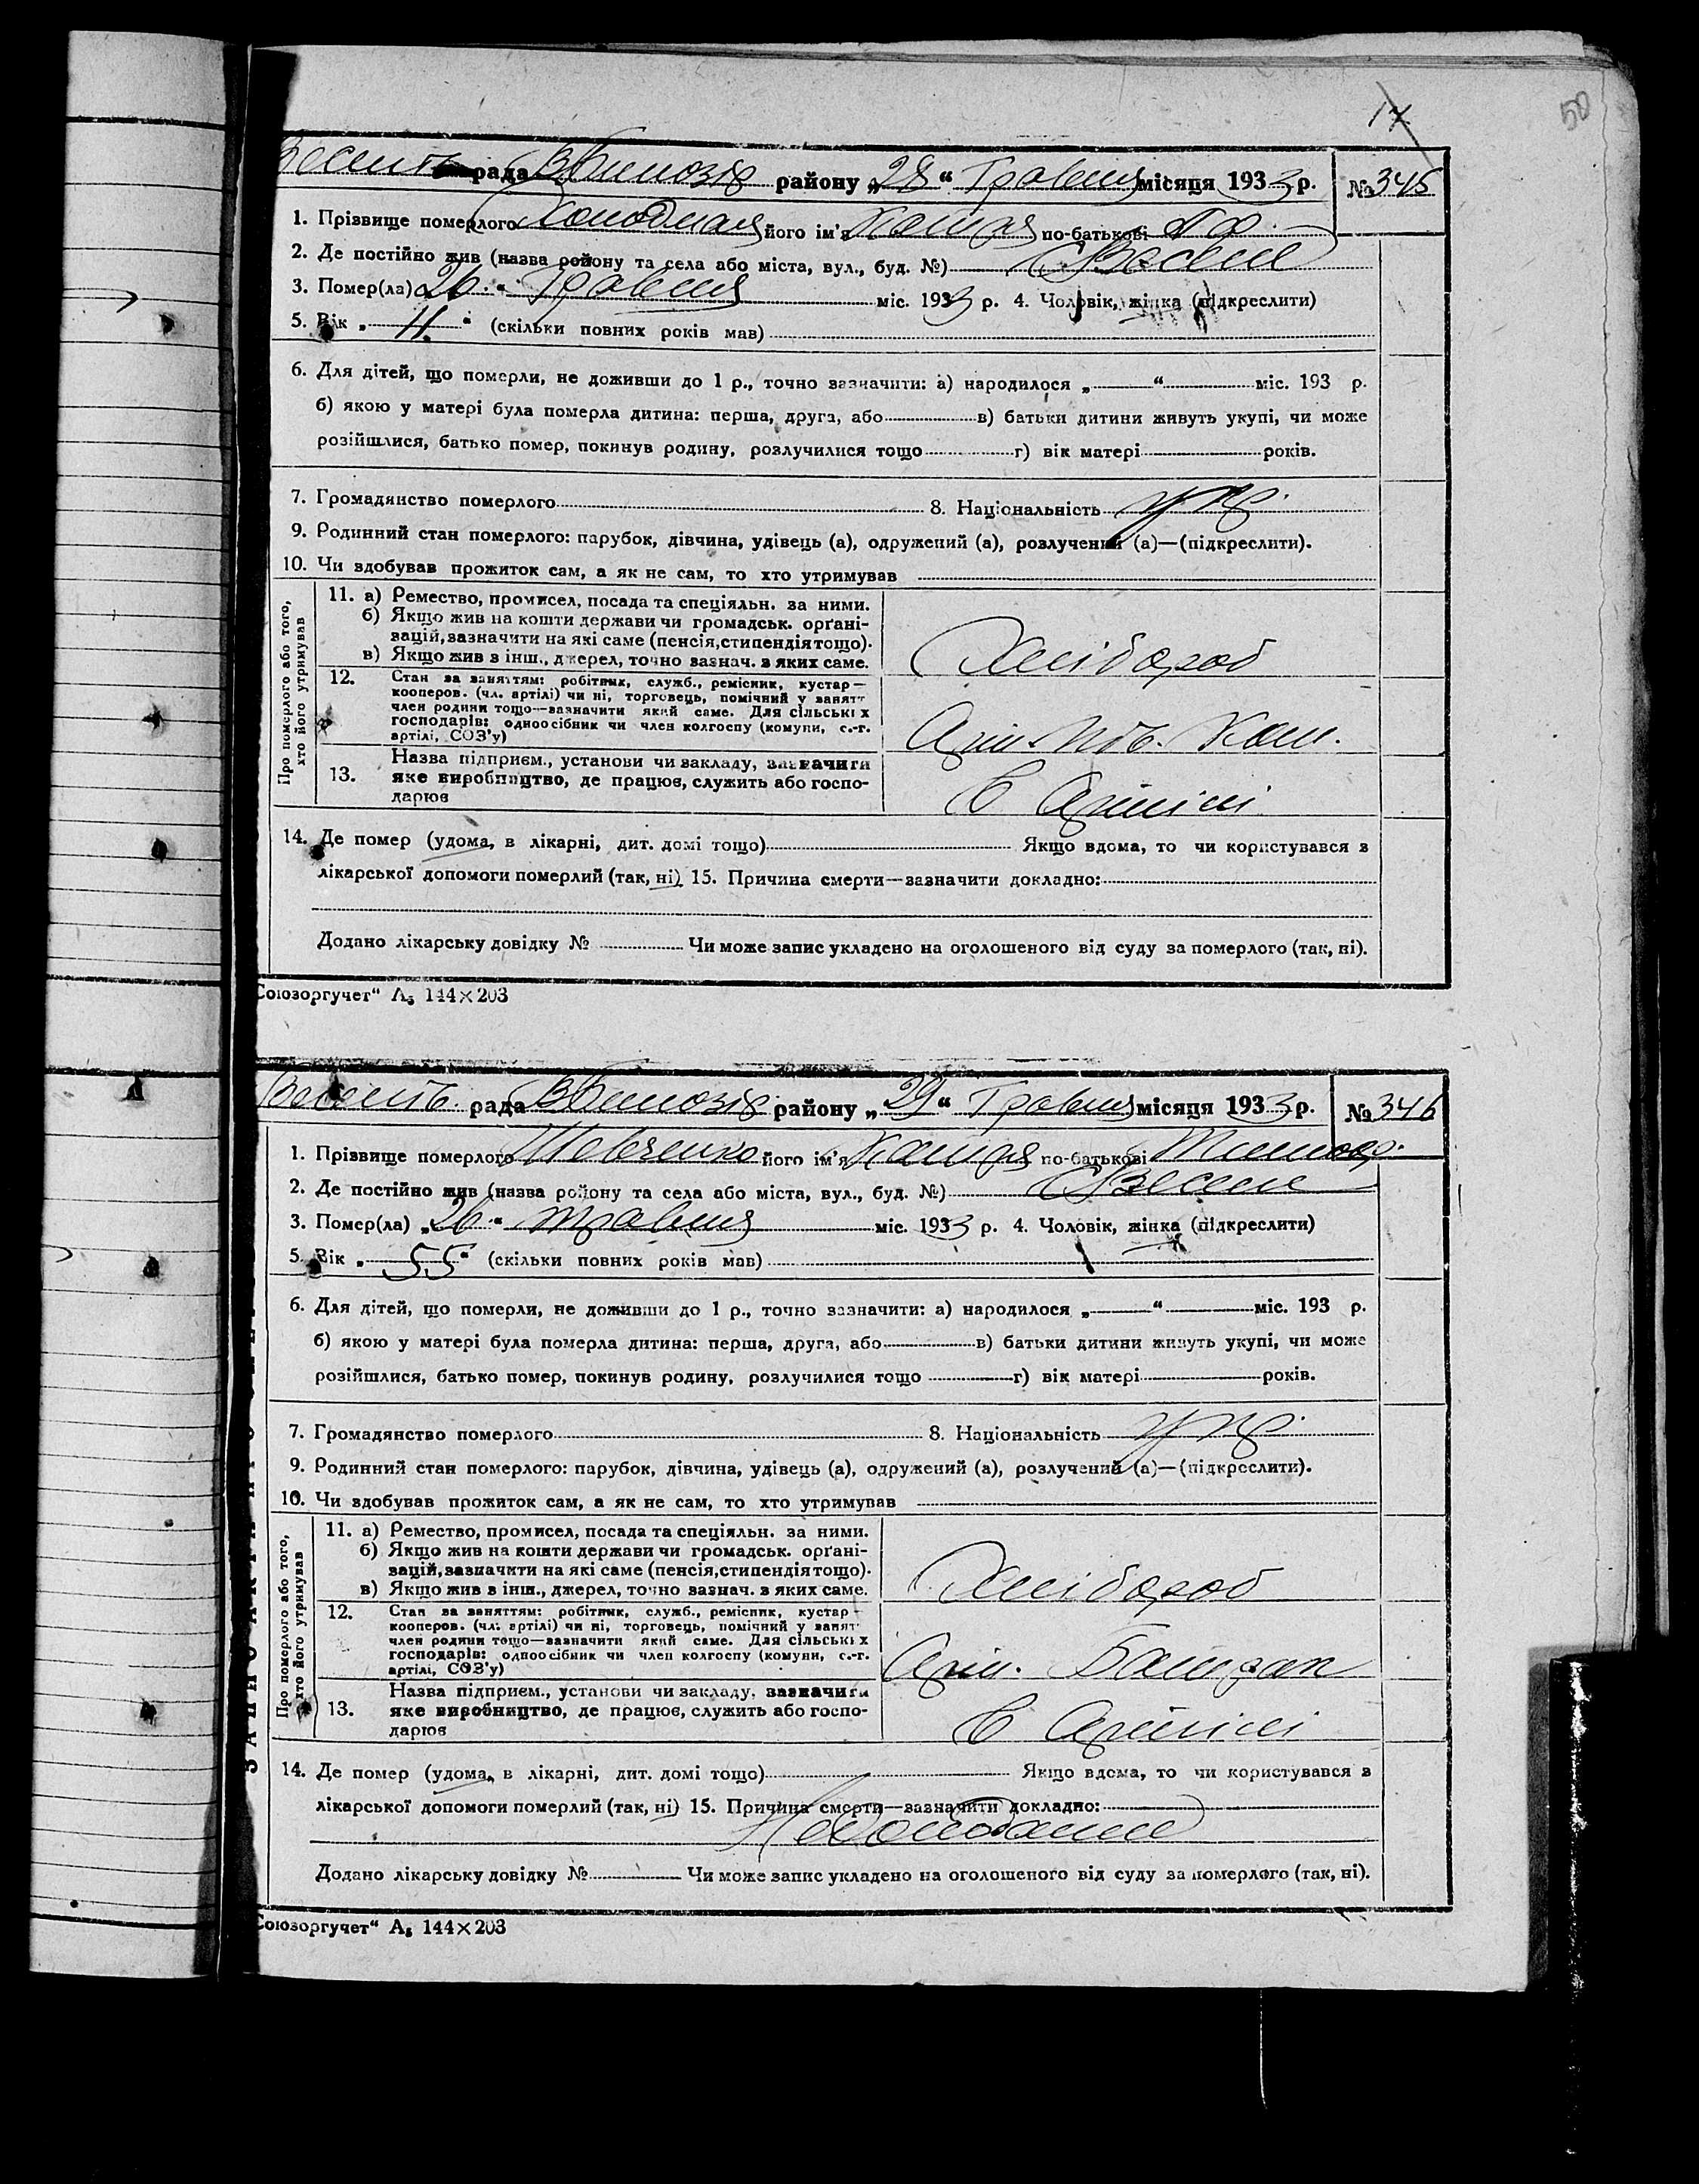 17
50
рада В Писмозір району „28“ Травня місяця 1933 р. № 345
1. Прізвище померлого Холодная його ім'я Катря по-батькові
2. Де постійно жив (назва району та села або міста, вул., буд. №) С Веселе
3. Помер(ла) „26“ Травня міс. 1933 р. 4. Чоловік, жінка (підкреслити)
5. Вік „11“ (скільки повних років мав)
6. Для дітей, що померли, не доживши до 1 р., точно зазначити: а) народилося „ “ міс. 193 р.
б) якою у матері була померла дитина: перша, друга, або в) батьки дитини живуть укупі, чи може
розійшлися, батько помер, покинув родину, розлучилися тощо г) вік матері років.
7. Громадянство померлого 8. Національність укр.
9. Родинний стан померлого: парубок, дівчина, удівець (а), одружений (а), розлучений (а)—(підкреслити).
10. Чи здобував прожиток сам, а як не сам, то хто утримував
Про померлого або того,
хто його утримував
11. а) Ремество, промисел, посада та спеціяльн. за ними.
б) Якщо жив на кошти держави чи громадськ. орґані-
зацій, зазначити на які саме (пенсія, стипендія тощо).
в) Якщо жив з інш., джерел, точно зазнач. з яких саме.
Хлібороб
12. Стан за заняттям: робітник, служб., ремісник, кустар—
кооперов. (чл. артілі) чи ні, торговець, помічний у занятт
член родини тощо—зазначити який саме. Для сільських
господарів: одноосібник чи член колгоспу (комуни, с.-г.
артілі, СОЗ'у)
Арт.
13. Назва підприєм., установи чи закладу, зазначити
яке виробництво, де працює, служить або госпо-
дарює
В Артілі
14. Де помер (удома, в лікарні, дит. домі тощо) Якщо вдома, то чи користувався з
лікарської допомоги померлий (так, ні) 15. Причина смерти—зазначити докладно:
Додано лікарську довідку № Чи може запис укладено на оголошеного від суду за померлого (так, ні).
Союзоргучет“ А₅ 144×203
рада В Писмозір району „29“ Травня місяця 1933 р. № 346
1. Прізвище померлого Шевченко його ім'я Катря по-батькові
2. Де постійно жив (назва району та села або міста, вул., буд. №) С Веселе
3. Помер(ла) „26“ травня міс. 1933 р. 4. Чоловік, жінка (підкреслити)
5. Вік „55“ (скільки повних років мав)
6. Для дітей, що померли, не доживши до 1 р., точно зазначити: а) народилося „ “ міс. 193 р.
б) якою у матері була померла дитина: перша, друга, або в) батьки дитини живуть укупі, чи може
розійшлися, батько помер, покинув родину, розлучилися тощо г) вік матері років.
7. Громадянство померлого 8. Національність укр.
9. Родинний стан померлого: парубок, дівчина, удівець (а), одружений (а), розлучений (а)—(підкреслити).
10. Чи здобував прожиток сам, а як не сам, то хто утримував
Про померлого або того,
хто його утримував
11. а) Ремество, промисел, посада та спеціяльн. за ними.
б) Якщо жив на кошти держави чи громадськ. орґані-
зацій, зазначити на які саме (пенсія, стипендія тощо).
в) Якщо жив з інш., джерел, точно зазнач. з яких саме.
Хлібороб
12. Стан за заняттям: робітник, служб., ремісник, кустар—
кооперов. (чл. артілі) чи ні, торговець, помічний у занят
член родини тощо—зазначити який саме. Для сільських
господарів: одноосібник чи член колгоспу (комуни, с.-г.
артілі, СОЗ'у)
Арт.
13. Назва підприєм., установи чи закладу, зазначити
яке виробництво, де працює, служить або госпо-
дарює
В Артілі
14. Де помер (удома, в лікарні, дит. домі тощо) Якщо вдома, то чи користувався з
лікарської допомоги померлий (так, ні) 15. Причина смерти—зазначити докладно:
Додано лікарську довідку № Чи може запис укладено на оголошеного від суду за померлого (так, ні).
Союзоргучет“ А₅ 144×203